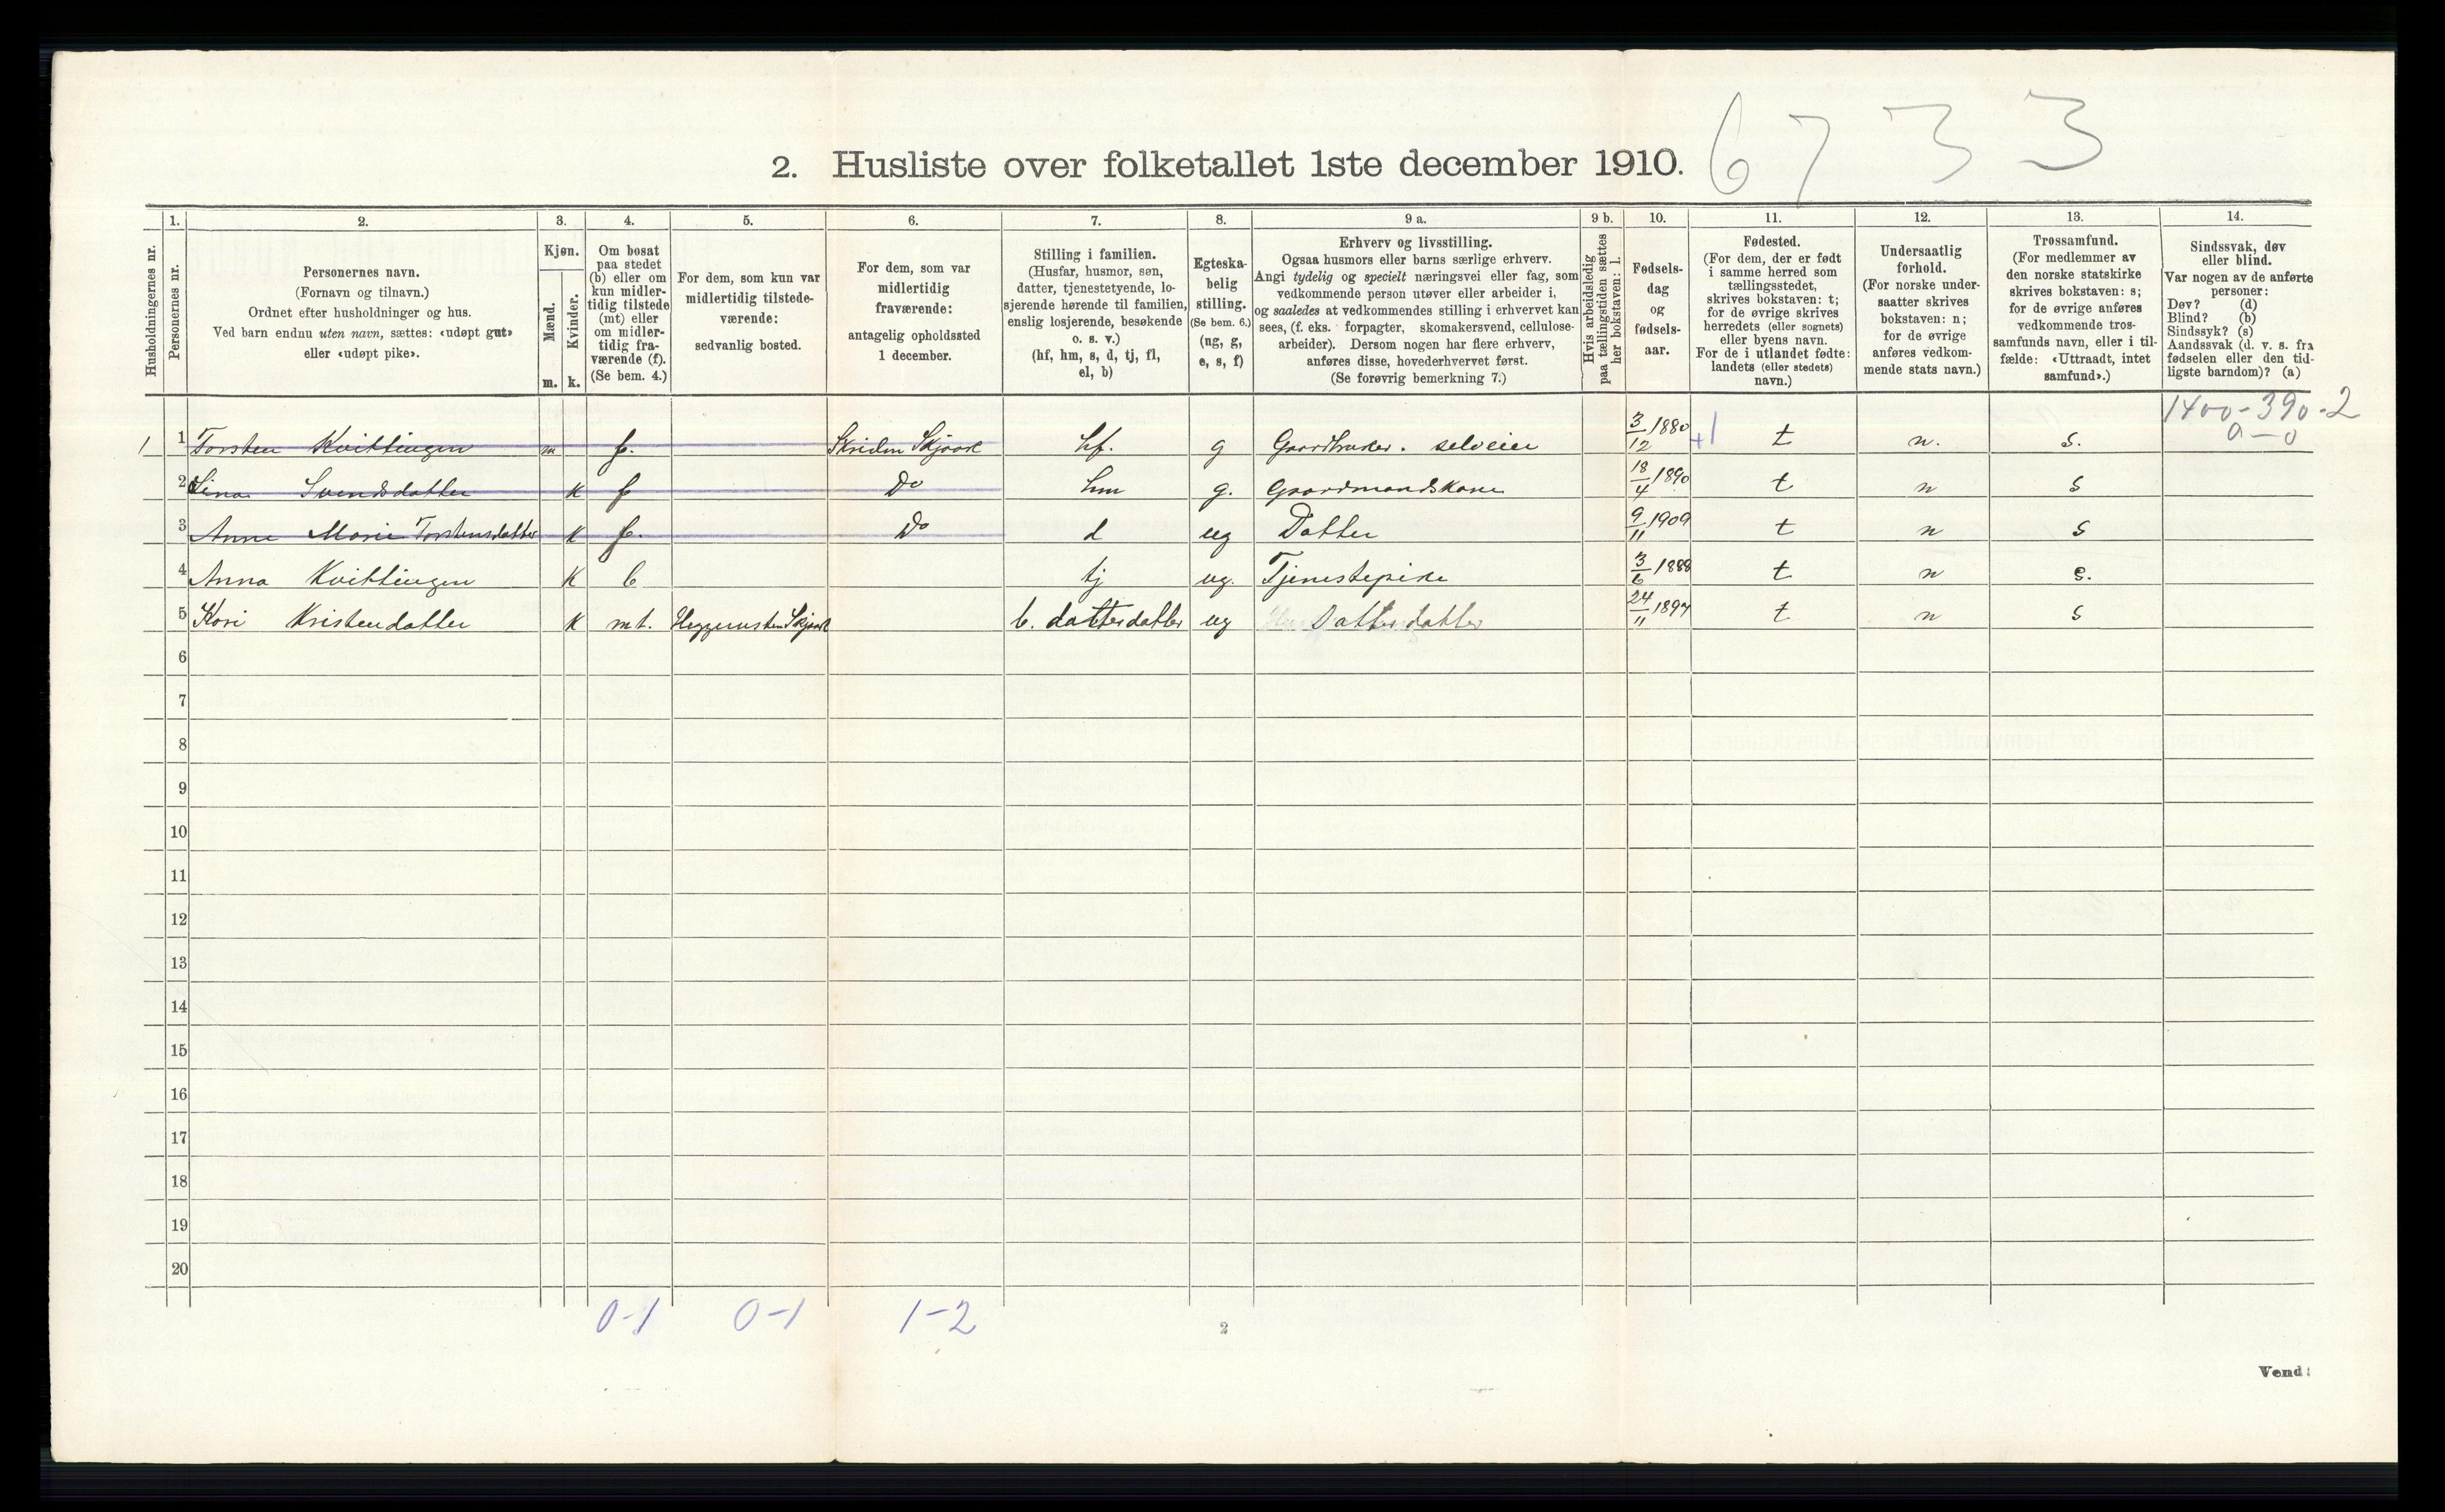 6733
2. Husliste over folketallet 1ste december 1910.
1. 2. 3. 4. 5. 6. 7. 8. 9 a. 9 b. 10. 11. 12. 13. 14.
Husholdningernes nr.
Personernes nr.
Personernes navn.
(Fornavn og tilnavn.)
Ordnet efter husholdninger og hus.
Ved barn endnu uten navn, sættes: «udøpt gut»
eller «udøpt pike».
Kjøn.
Mænd.
Kvinder.
m. k.
Om bosat
paa stedet
(b) eller om
kun midler-
tidig tilstede
(mt) eller
om midler-
tidig fra-
værende (f).
(Se bem. 4.)
For dem, som kun var
midlertidig tilstede-
værende:
sedvanlig bosted.
For dem, som var
midlertidig
fraværende:
antagelig opholdssted
1 december.
Stilling i familien.
(Husfar, husmor, søn,
datter, tjenestetyende, lo-
sjerende hørende til familien,
enslig losjerende, besøkende
o. s. v.)
(hf, hm, s, d, tj, fl,
el, b)
Egteska-
belig
stilling.
(Se bem. 6.)
(ug, g,
e, s, f)
Erhverv og livsstilling.
Ogsaa husmors eller barns særlige erhverv.
Angi tydelig og specielt næringsvei eller fag, som
vedkommende person utøver eller arbeider i,
og saaledes at vedkommendes stilling i erhvervet kan
sees, (f. eks. forpagter, skomakersvend, cellulose-
arbeider). Dersom nogen har flere erhverv,
anføres disse, hovederhvervet først.
(Se forøvrig bemerkning 7.)
Hvis arbeidsledig
paa tællingstiden sættes
her bokstaven: l.
Fødsels-
dag
og
fødsels-
aar.
Fødested.
(For dem, der er født
i samme herred som
tællingsstedet,
skrives bokstaven: t;
for de øvrige skrives
herredets (eller sognets)
eller byens navn.
For de i utlandet fødte:
landets (eller stedets)
navn.)
Undersaatlig
forhold.
(For norske under-
saatter skrives
bokstaven: n;
for de øvrige
anføres vedkom-
mende stats navn.)
Trossamfund.
(For medlemmer av
den norske statskirke
skrives bokstaven: s;
for de øvrige anføres
vedkommende tros-
samfunds navn, eller i til-
fælde: «Uttraadt, intet
samfund».)
Sindssvak, døv
eller blind.
Var nogen av de anførte
personer:
Døv? (d)
Blind? (b)
Sindssyk? (s)
Aandssvak (d. v. s. fra
fødselen eller den tid-
ligste barndom)? (a)
1400-390-2
0-0
1 1 Torsten Kvittingen m f. Skriden Skjaak hf. g Gaardbruker. selveier 3/12 1880 +1 t n. s.
2 Sina Svendsdatter k f Do hm g. Gaardmandskone 18/4 1890 t n s
3 Anne Marie Torstensdatter k f. Do d ug Datter 9/11 1909 t n s
4 Anna Kvittingen k b tj ug. Tjenestepike 3/6 1888 t n s.
5 Kari Kristendatter k mt. Heggernsten Skjaak b. datterdatter ug Datterdatter 24/11 1897 t n s
6
7
8
9
10
11
12
13
14
15
16
17
18
19
20
0-1 0-1 1-2
2
Vend!